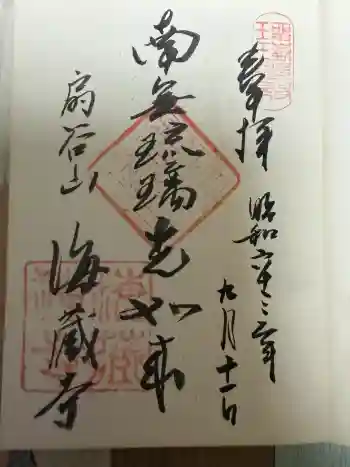 奉拝
昭和六十三年
九月十一日
南無琉璃光如来
扇谷山
海蔵寺